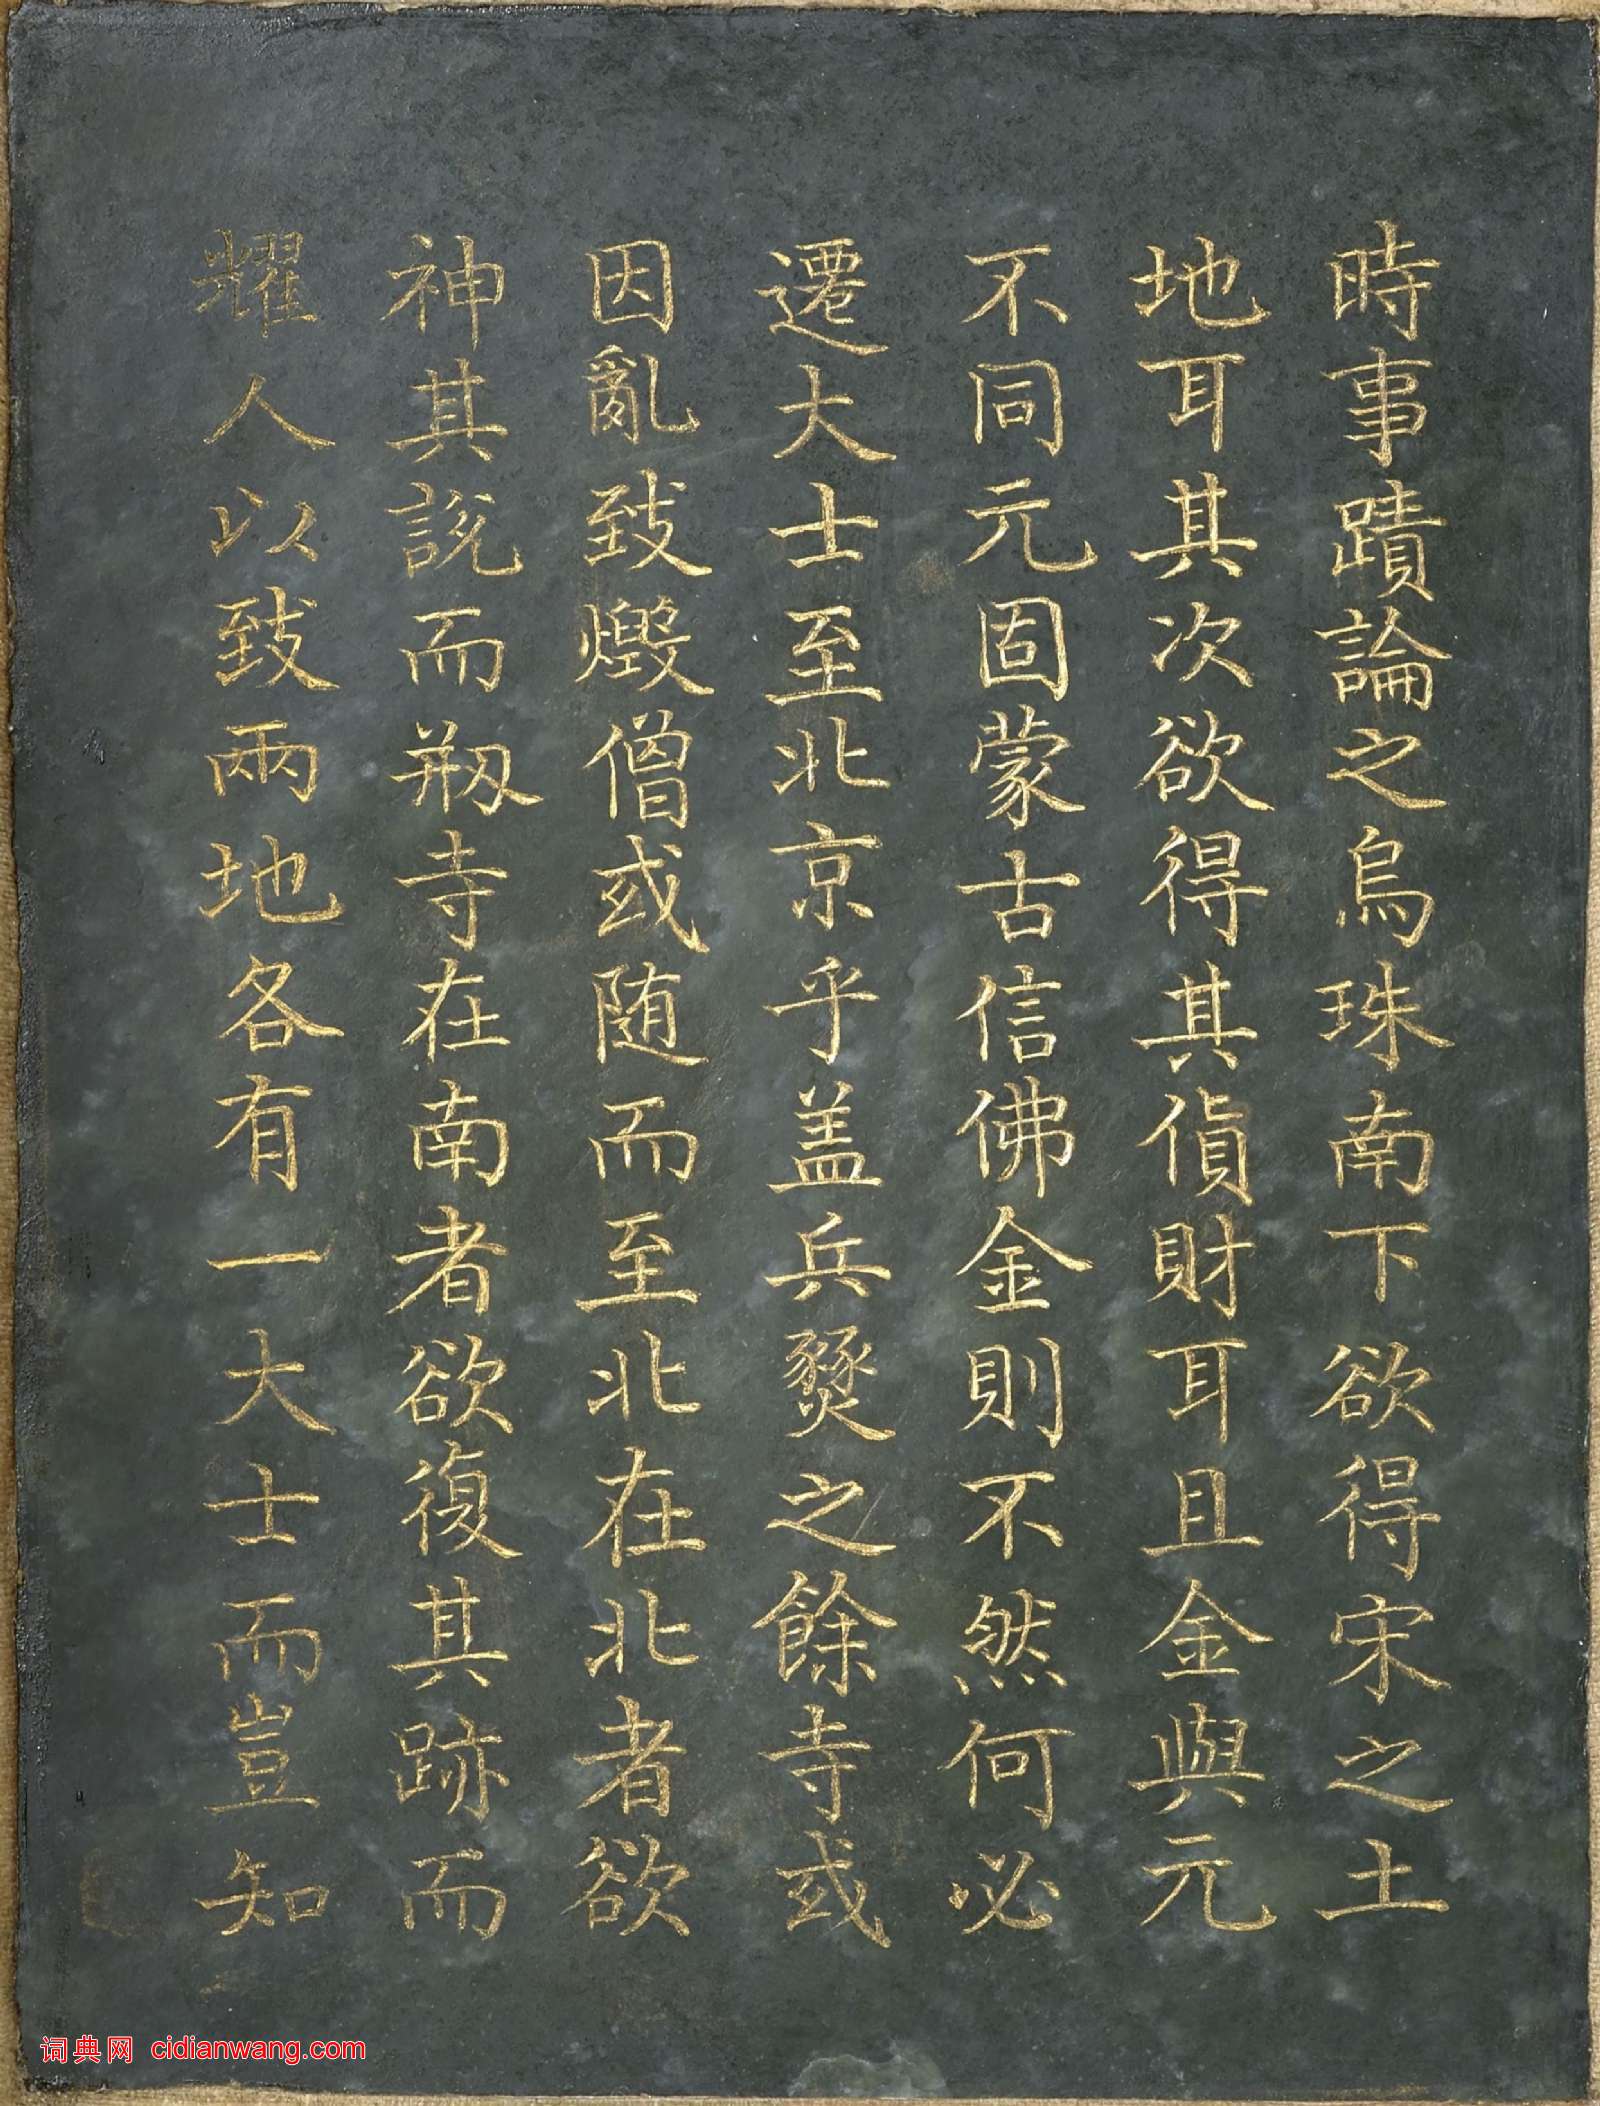 時事蹟論之烏珠南下欲得宋之土
地耳其次欲得其貨財耳且金與元
不同元固蒙古信佛金則不然何必
遷大士至北京乎盖兵燹之餘寺或
因亂致燬僧或随而至北在北者欲
神其説而剏寺在南者欲復其跡而
耀人以致兩地各有一大士而豈知
词典网 cidianwang.com